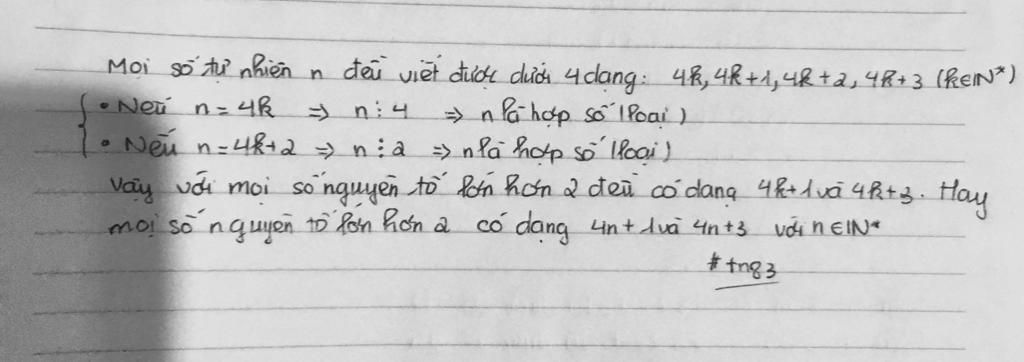 Mọi số tự nhiên n đều viết được dưới 4 dạng: 4k, 4k+1, 4k+2, 4k+3 (k∈ℕ*)
• Nếu n = 4k ⇒ n ⋮ 4 ⇒ n là hợp số (loại)
• Nếu n=4k+2 ⇒ n ⋮ 2 ⇒ n là hợp số (loại)
Vậy với mọi số nguyên tố lớn hơn 2 đều có dạng 4k+1 và 4k+3. Hay
mọi số nguyên tố lớn hơn 2 có dạng 4n+1 và 4n+3 với n∈ℕ*
# tng3